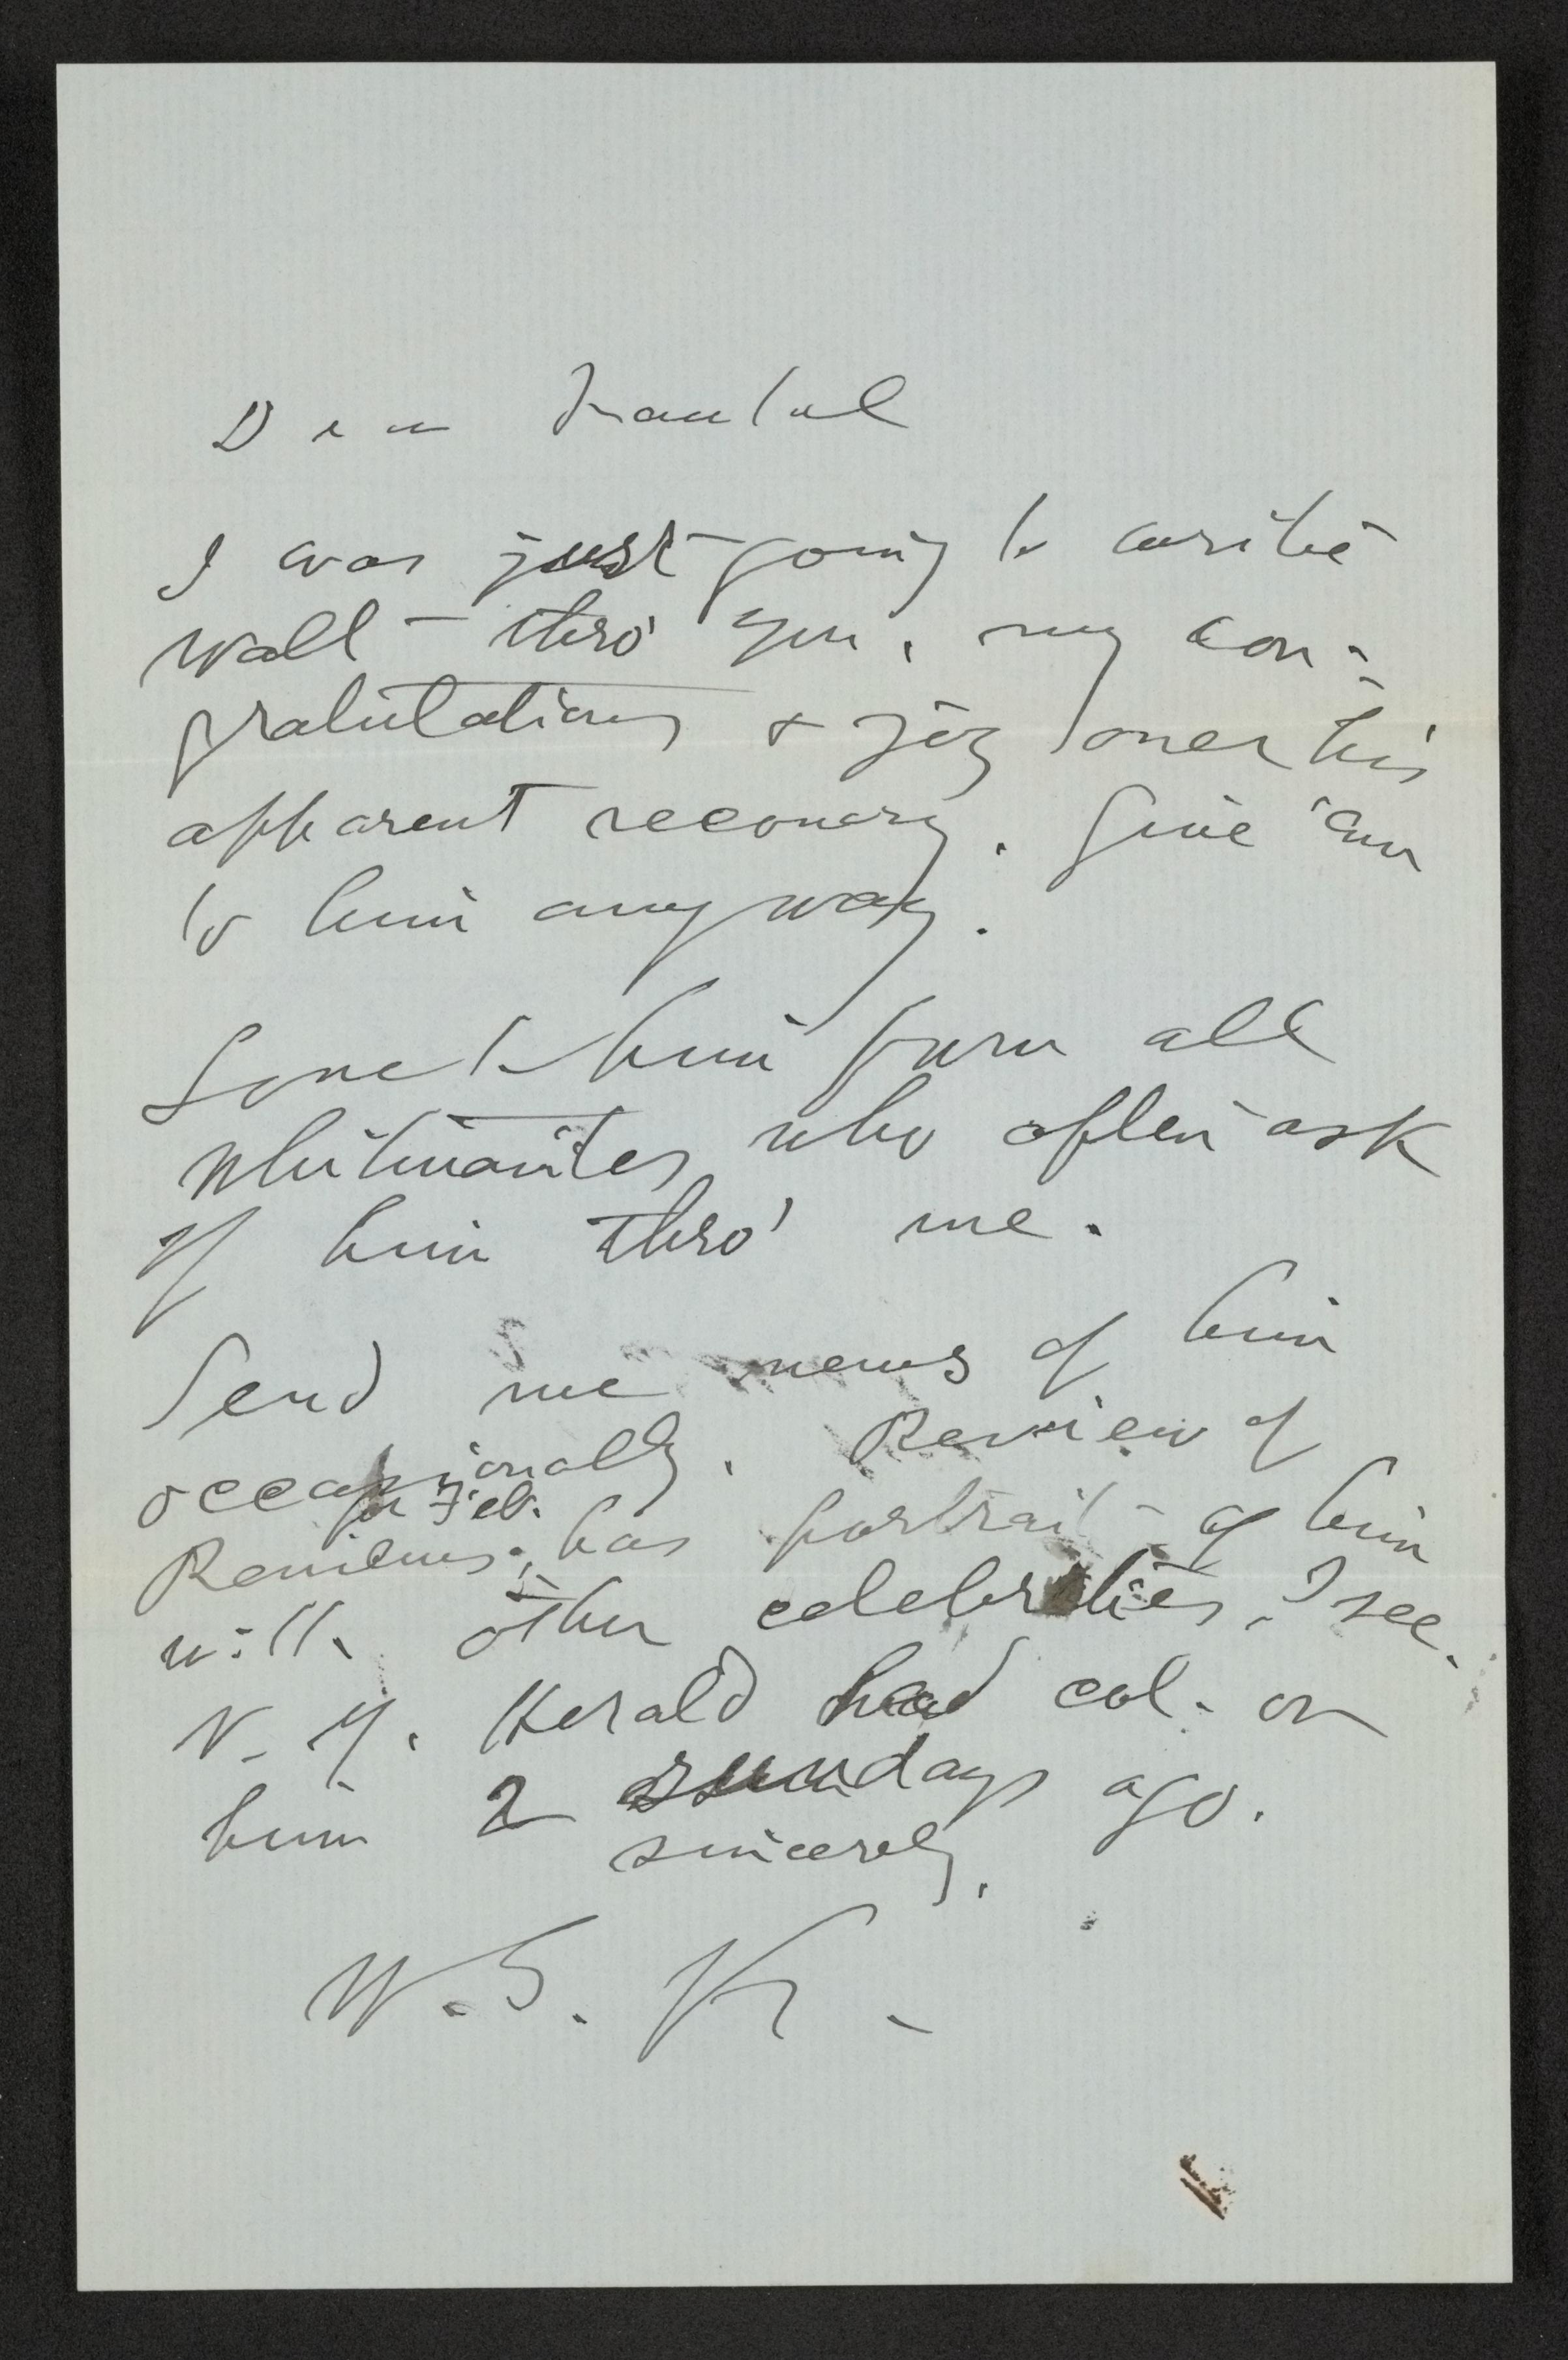 Dear Traubel
I was just going to write
Walt – thro' you, my con-
gratulations & joy over his
apparent recovery. Give 'em
to him anyway.
Love to him from all
Whitmanites who often ask
of him thro' me.
Send me news of him
occasionally. Review of
for Feb.
Reviews, has portrait of him
with other celebrities, I see.
N. Y. Herald had col. on
him 2 sundays ago.
sincerely,
W. S. K.